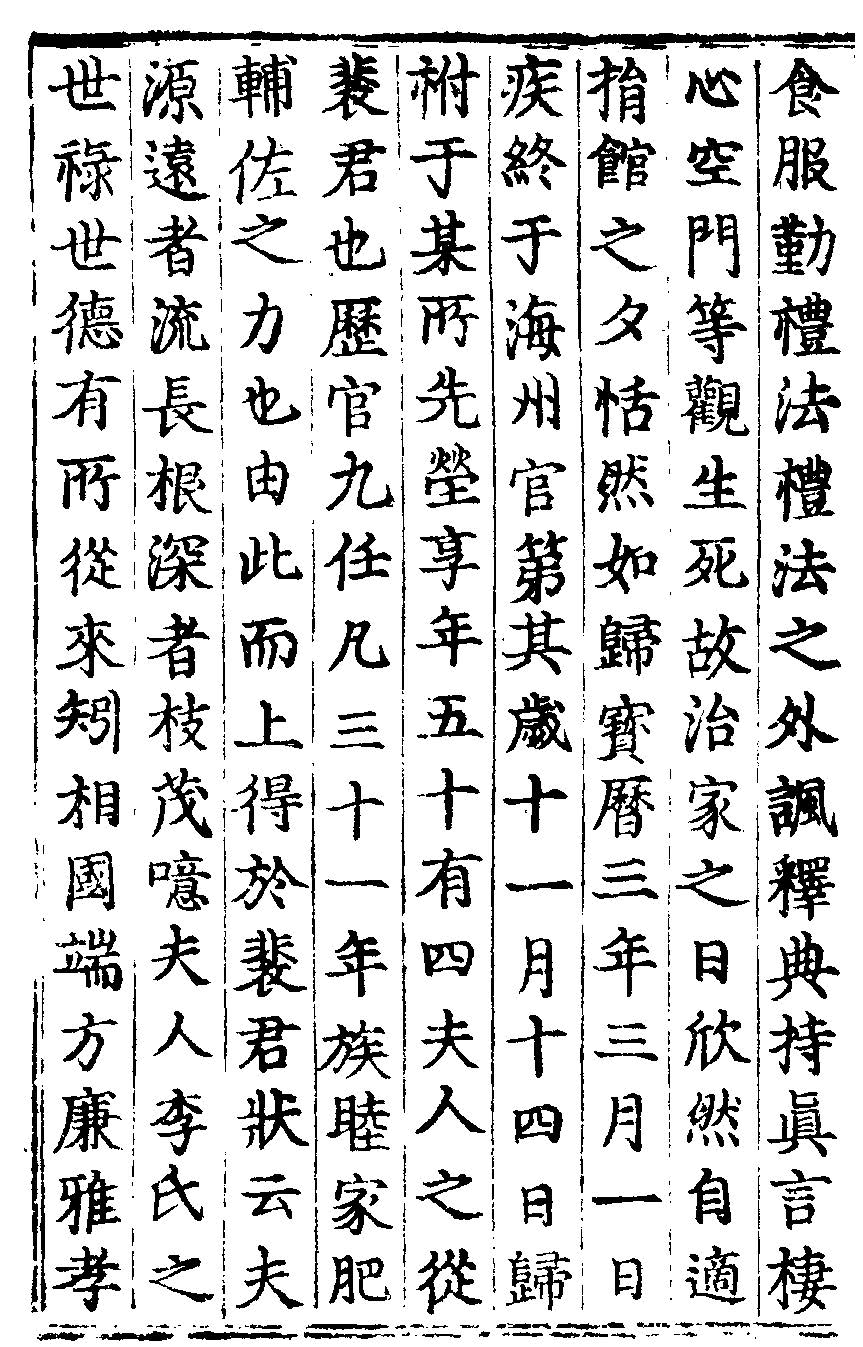 食服勤禮法禮法之外諷釋典持眞言棲
心空門等觀生死故治家之日欣然自適
捐館之夕恬然如歸寶曆三年三月一日
疾終于海州官第其歲十一月十四日歸
祔于某所先塋享年五十有四夫人之從
裴君也歷官九任凡三十一年族睦家肥
輔佐之力也由此而上得於裴君狀云夫
源遠者流長根深者枝茂噫夫人李氏之
世祿世德有所從來矧相國端方廉雅孝